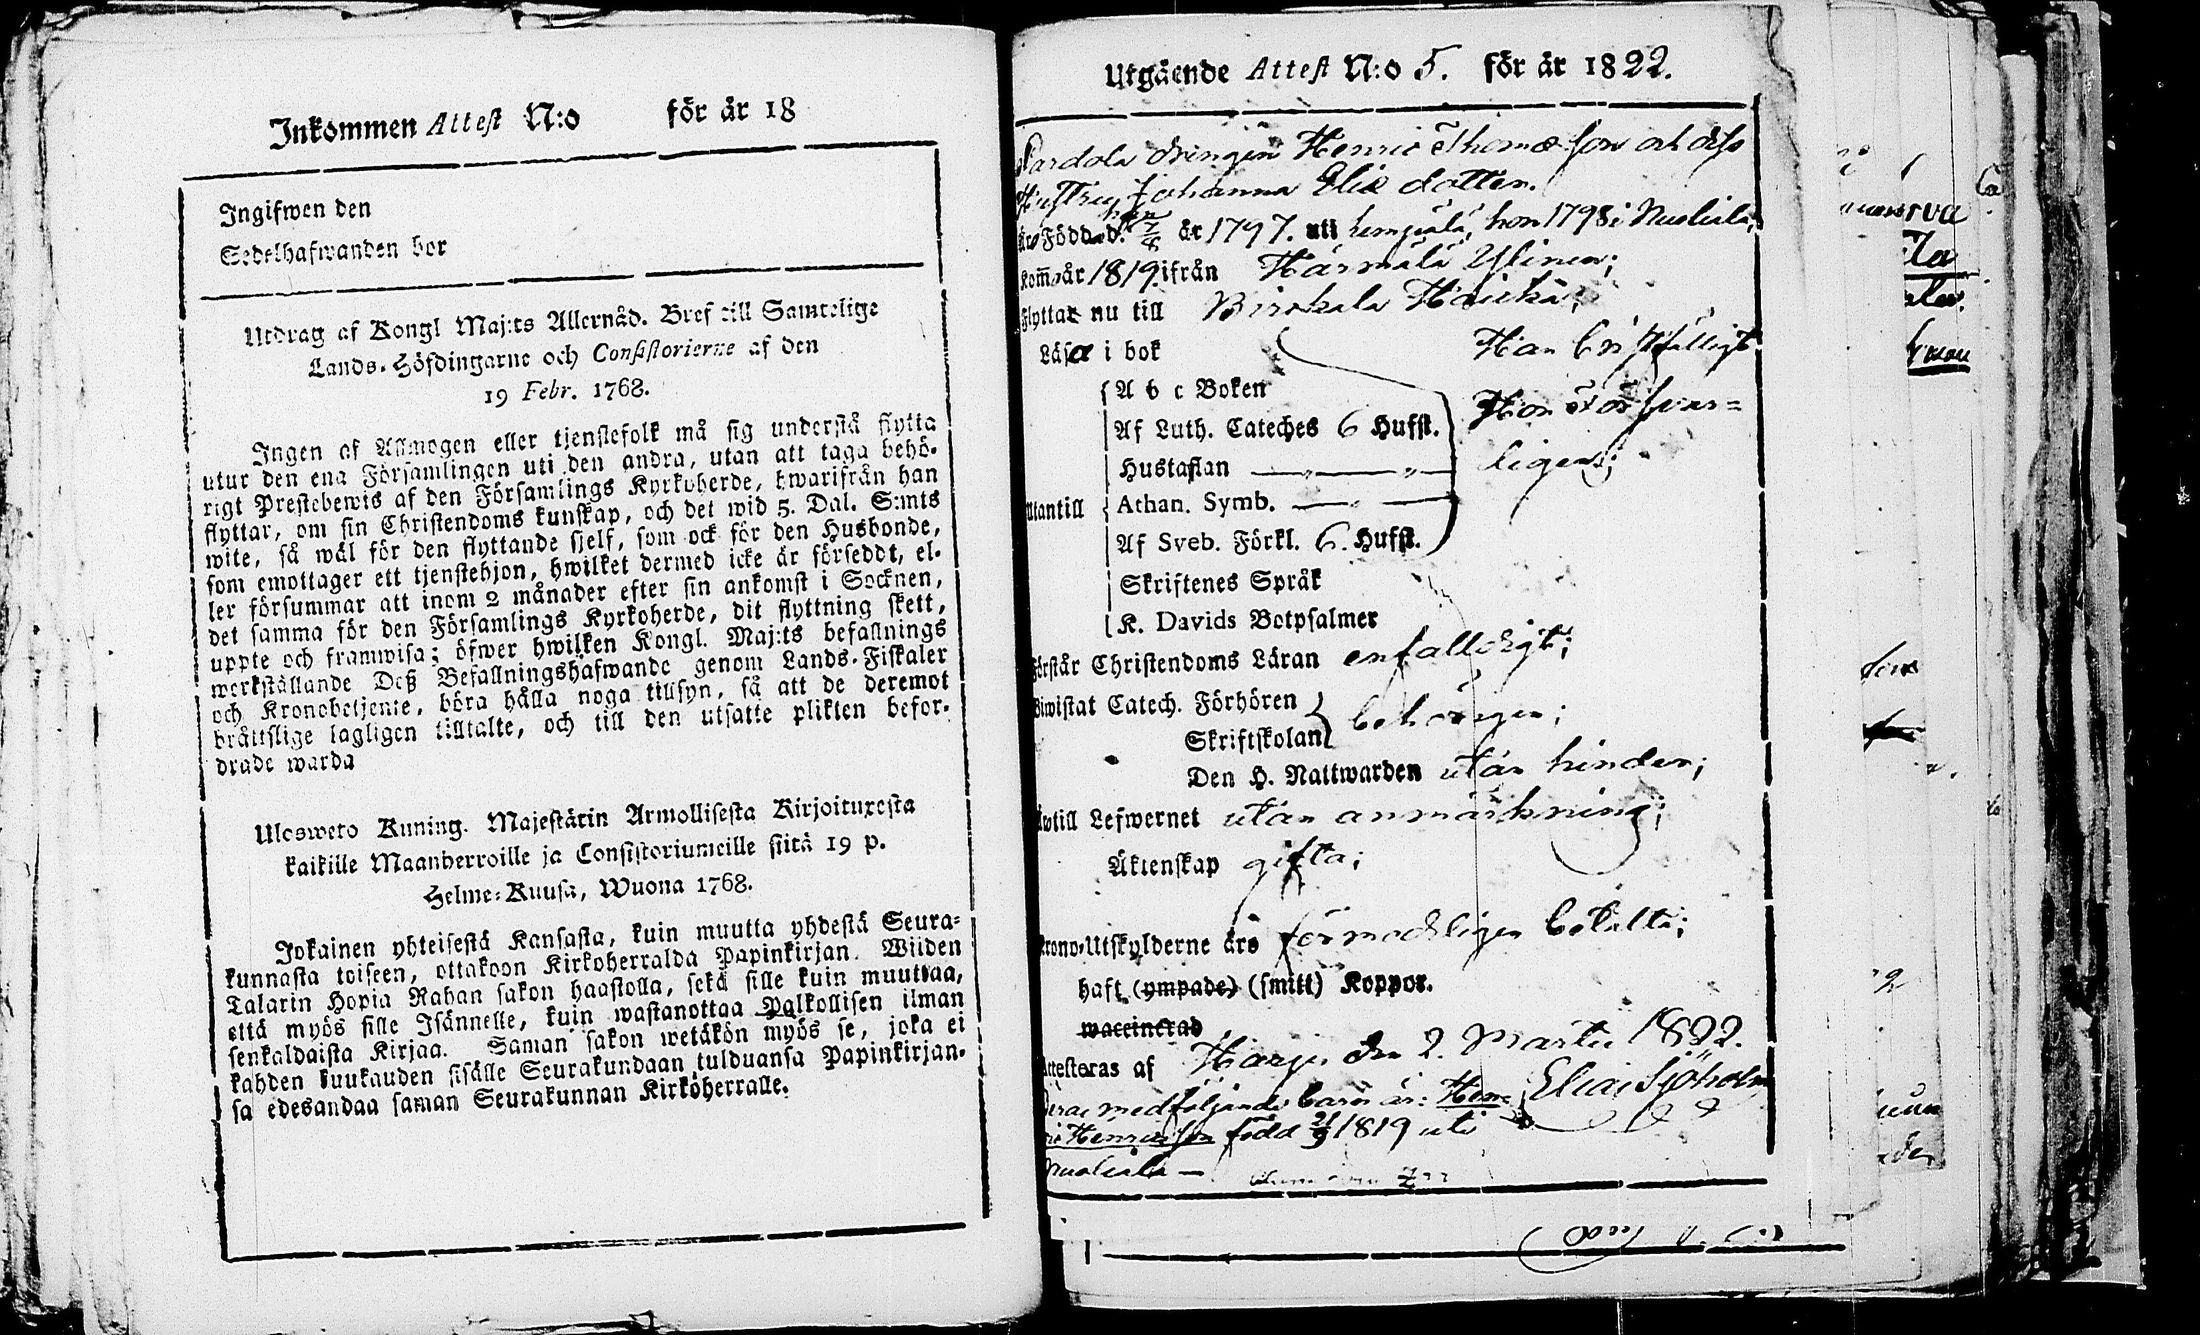 Inkommen Attest N:o för år 18
Ingifwen den
Sedelhafwanden bor
Utdrag af Kongl Maj:ts Allernåd. Bref till Samtelige
Lands-Höfdingarne och Consistorierne af den
19 Febr. 1768.
Ingen af Allmogen eller tjenstefolk må sig understå flytta
utur den ena Församlingen uti den andra, utan att taga behö-
rigt Prestebewis af den Församlings Kyrkoherde, hwarifrån han
flyttar, om sin Christendoms kunskap, och det wid 5. Dal. S:mts
wite, så wäl för den flyttande sjelf, som ock för den Husbonde,
som emottager ett tjenstehjon, hwilket dermed icke är förseddt, el-
ler försummar att inom 2 månader efter sin ankomst i Socknen,
det samma för den Församlings Kyrkoherde, dit flyttning skett,
uppte och framwisa; öfwer hwilken Kongl. Maj:ts befallnings
werkställande Deß Befallningshafwande genom Lands-Fiskaler
och Kronobetjente, böra hålla noga tillsyn, så att de deremot
bråttslige lagligen tilltalte, och till den utsatte plikten befor-
drade warda
Ulosweto Kuning. Majestätin Armollisesta Kirjoituxesta
kaikille Maanherroille ja Consistoriumeille siitä 19 p.
Helme-Kuusa, Wuona 1768.
Jokainen yhteisestä Kansasta, kuin muutta yhdestä Seura-
kunnasta toiseen, ottakoon Kirkoherralda Papinkirjan. Wiiden
Talarin Hopia Rahan sakon haastolla, sekä sille kuin muuttaa,
että myös sille Isännelle, kuin wastanottaa Palkollisen ilman
senkaldaista Kirjaa. Saman sakon wetäkön myös se, joka ei
kahden kuukauden sisälle Seurakundaan tulduansa Papinkirjan-
sa edesandaa saman Seurakunnan Kirköherralle.
Utgående Attest N:o 5. för år 1822.
drengen Henric Thomæ son och dess
Hustru Johanna Eliæ dotter.
Född d. han 7/8 år 1797. uti hon 1798 i
kom år 1819 ifrån Härmälä Ylinen;
Flyttar nu till Birckala
Läsa i bok Han
A b c Boken
Af Luth. Cateches 6 Hufst. Hon försvar=
Hustaflan ligen;
Utantill Athan. Symb.
Af Sveb. Förkl. 6. Hufst.
Skriftenes Språk
K. Davids Botpsalmer
Förstår Christendoms Läran enfalldigt;
Biwistat Catech. Förhören
Skriftskolan behörigen;
Den H. Nattwarden utan hinder;
till Lefwernet utan anmärkning;
Äktenskap gifta;
Krono-Utskylderne äro förmodligen betalta;
haft (ympade) (smitt) Koppor.
waccinerad
Attesteras af den 2. Martii 1822.
Elias Sjöholm
medföljande barn är: Hen
Henricsson född 21/9 1819 uti